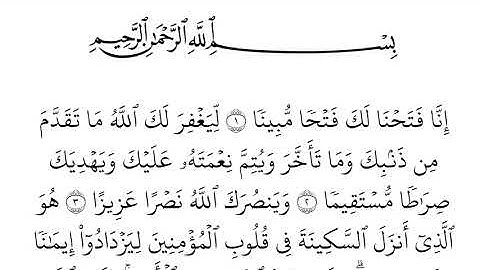 بِسْمِ ٱللَّهِ ٱلرَّحْمَٰنِ ٱلرَّحِيمِ
إِنَّا فَتَحْنَا لَكَ فَتْحًا مُّبِينًا ١ لِّيَغْفِرَ لَكَ ٱللَّهُ مَا تَقَدَّمَ
مِن ذَنۢبِكَ وَمَا تَأَخَّرَ وَيُتِمَّ نِعْمَتَهُۥ عَلَيْكَ وَيَهْدِيَكَ
صِرَٰطًا مُّسْتَقِيمًا ٢ وَيَنصُرَكَ ٱللَّهُ نَصْرًا عَزِيزًا ٣ هُوَ
ٱلَّذِىٓ أَنزَلَ ٱلسَّكِينَةَ فِى قُلُوبِ ٱلْمُؤْمِنِينَ لِيَزْدَادُوٓا۟ إِيمَٰنًا